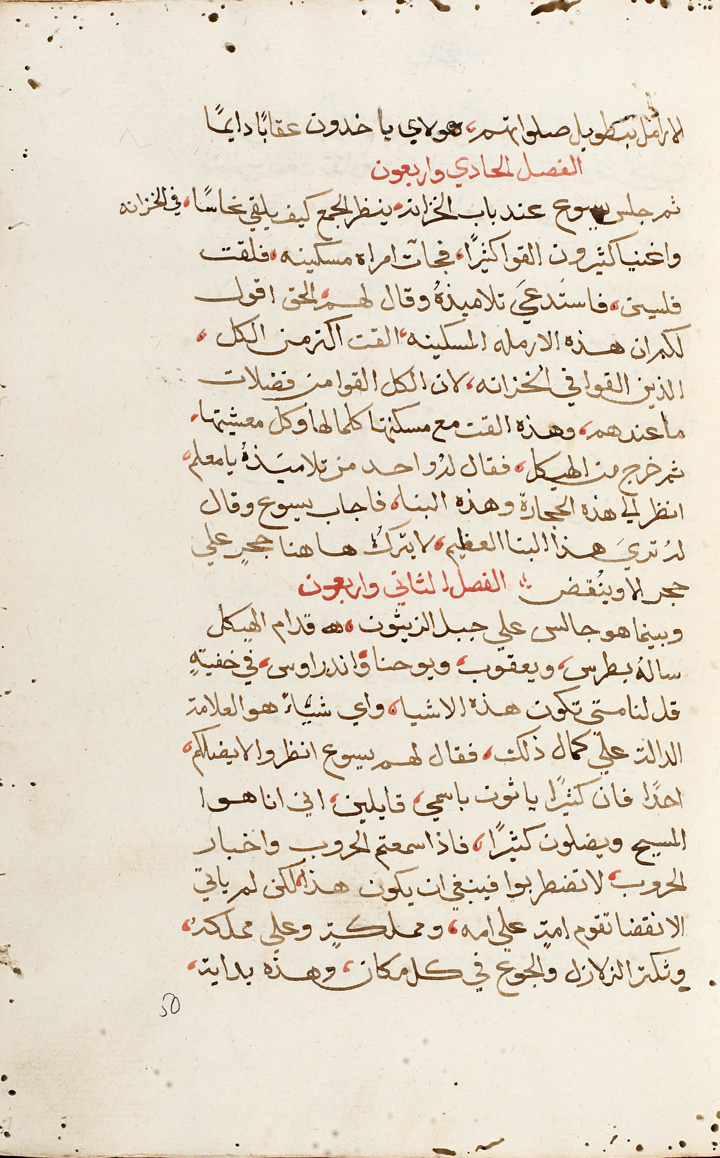 الارامل بتطويل صلواتهم، هولاي ياخدون عقابًا دايمًا
الفصل الحادي واربعون
ثم جلس يسوع عند باب الخزانه، ينظر الجمع كيف يلقي نحاسًا، في الخزانه
واغنيا كثيرون القوا كثيرًا، فجات امراه مسكينه، فلقت
فلسين، فاستدعيَ تلاميذهُ وقال لهم، الحق اقول
لكم ان هذه الارمله المسكينه، القت اكتر من الكل،
الذين القوا في الخزانه، لان الكل القوا من فضلات
ما عندهم، وهذه القت مع مسكنتها كلما لها وكل معيشتها،
ثم خرج من الهيكل، فقال لهُ واحد من تلاميذهُ يا معلم،
انظر الي هذه الحجارة وهذه البنا، فاجاب يسوع وقال
لهُ تريَ هذا البنا العظيم، لا يترك هاهنا حجرٍ علي
حجر الا وينُقض الفصل الثاني واربعون
وبينما هو جالس علي جبل الزيثون، قدام الهيكل
سالهُ بطرس، ويعقوب، ويوحنا، واندراوس، في خفيتهِ
قل لنا متي تكون هذه الاشيا، واي شيًاء هو العلامة
الدالة علي كمال ذلك، فقال لهم يسوع انظروا لا يضلكم،
احدًا فان كثيرًا ياثون باسمي، قايلين، اني انا هوا
المسيح ويضلون كثيرًا، فاذا سمعتم الحروب واخبار
الحروب، لا تضطربوا فينبغي ان يكون هذا، لكن لم ياتي
الانقضا تقوم امةٍ علي امه، ومملكةٍ وعلي مملكة،
وتكتر الزلازل والجوع في كل مكان، وهذه بداية،